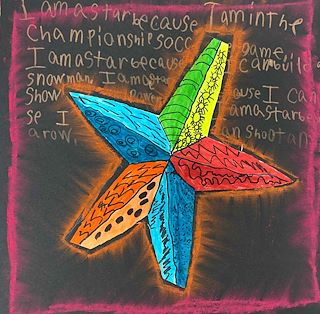 I am a star because I am in the
championship socc game,
I am a star because I can build a
snowman. I am a star
show Power ause I can
se I am a star be
arow. an shoot an